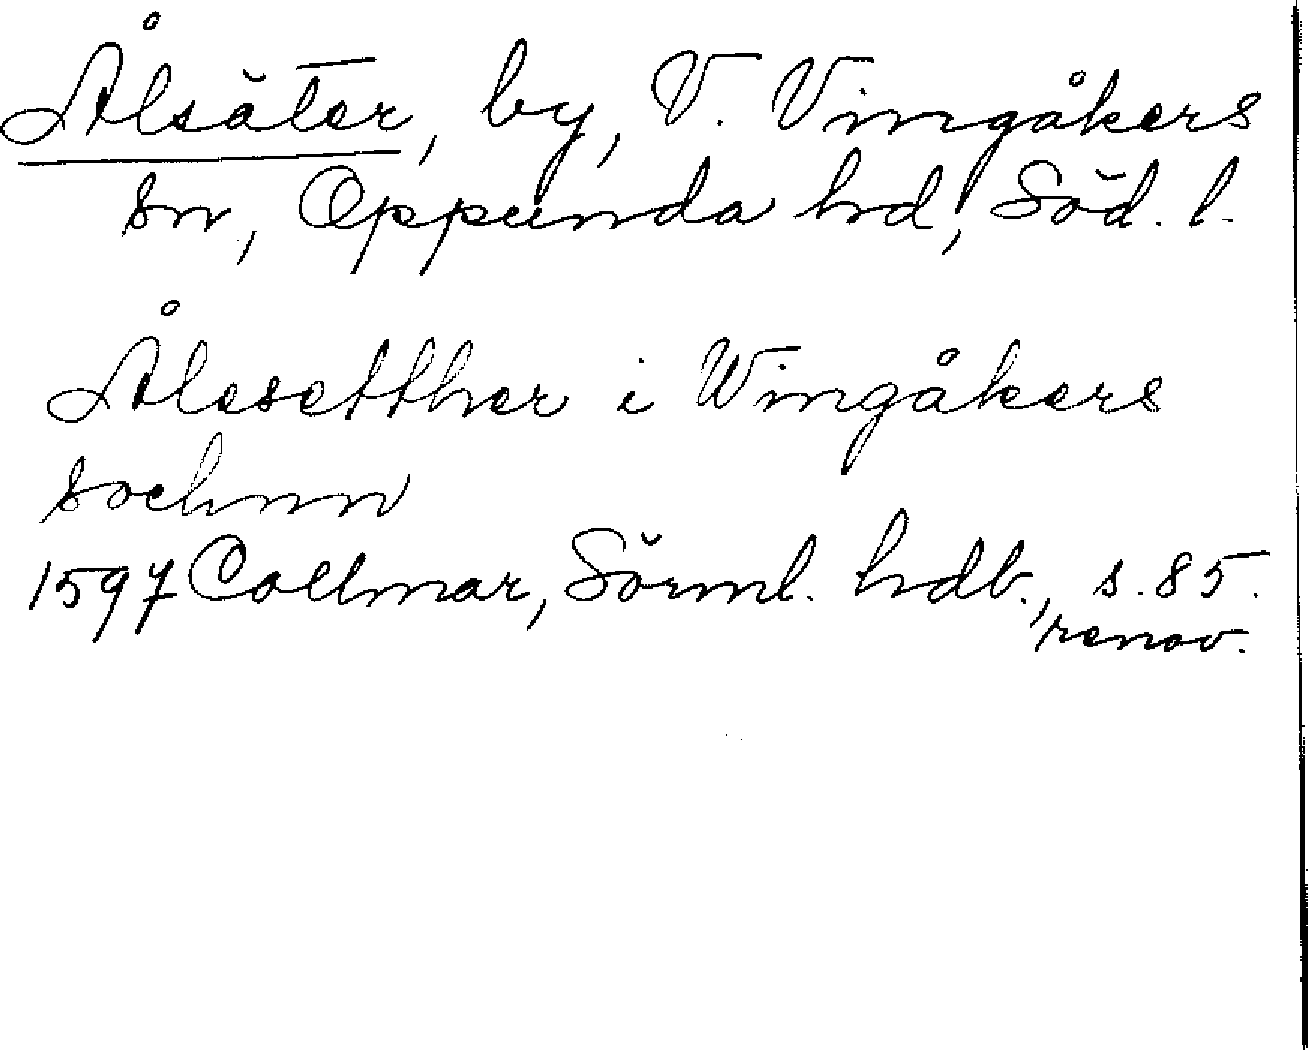 Ålsäter, by, V. Vingåkers
sn, Oppunda hd, Söd. l.
Ålesetther i Wingåkers
sochnn
1597 Collmar, Sörml. hdb., s. 85.
renov.